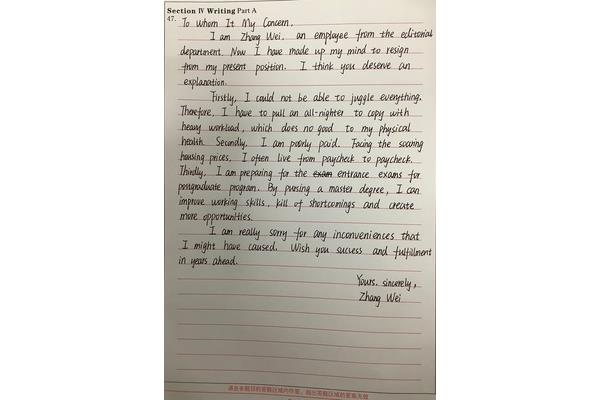 Section IV Writing Part A
47.
To Whom It My Concern,
I am Zhang Wei, an employee from the editorial
department. Now I have made up my mind to resign
from my present position. I think you deserve an
explanation.
Firstly, I could not be able to juggle everything.
Therefore, I have to pull an all-nighter to copy with
heavy workload, which does no good to my physical
health. Secondly, I am poorly paid. Facing the soaring
housing prices, I often live from paycheck to paycheck.
Thirdly, I am preparing for the exam entrance exams for
postgraduate program. By pursing a master degree, I can
improve working skills, kill of shortcomings and create
more opportunities.
I am really sorry for any inconveniences that
I might have caused. Wish you success and fulfillment
in years ahead.
Yours, sincerely,
Zhang Wei
请在各题目的答题区域内作答，超出答题区域的答案无效